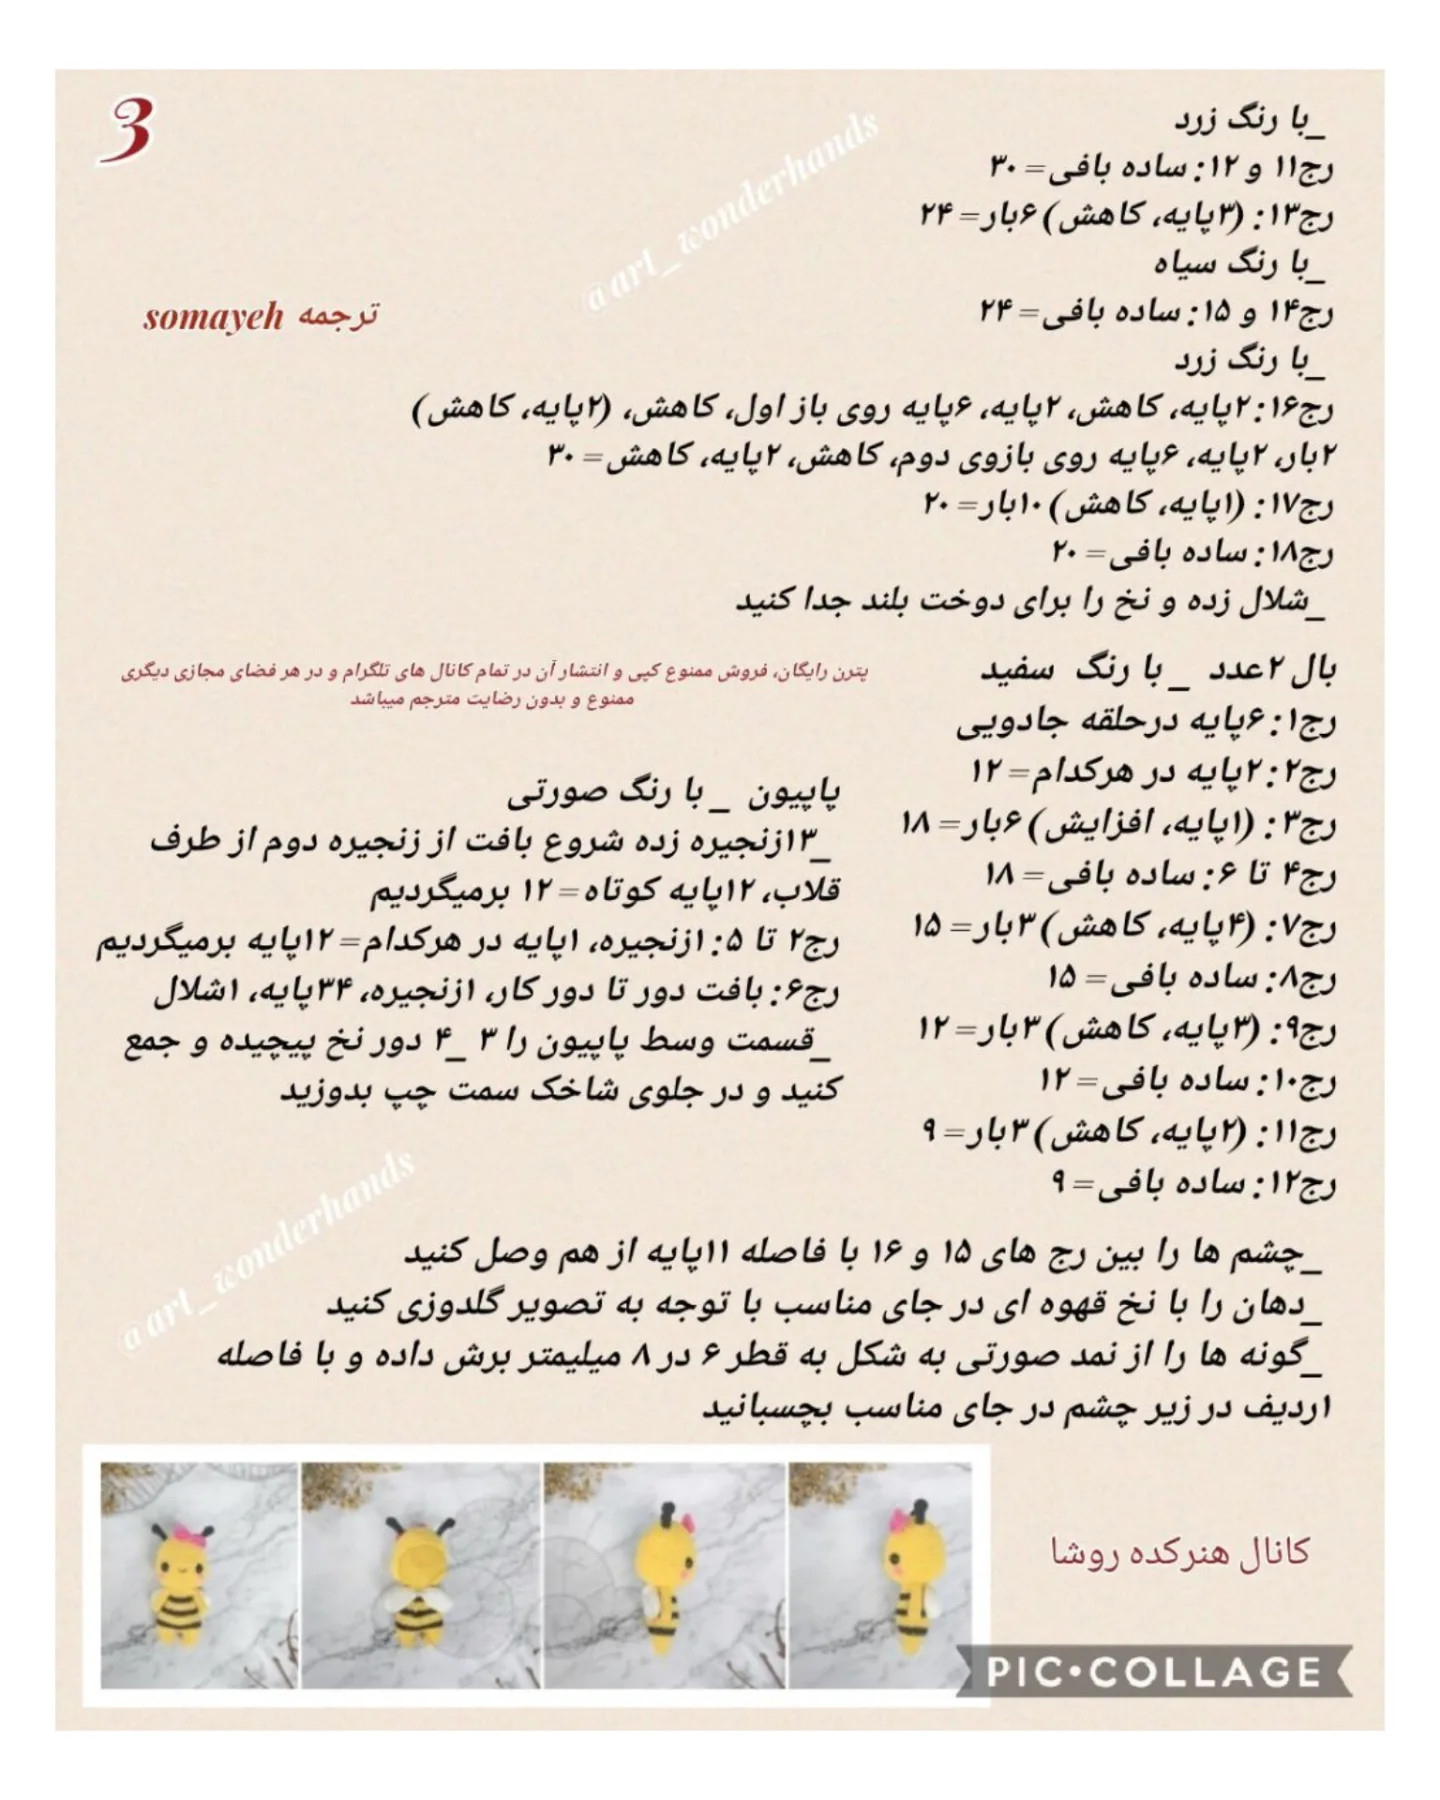 3
_با رنگ زرد
رج۱۱ و ۱۲: ساده بافی= ۳۰
رج۱۳: (۳پایه، کاهش) ۶بار= ۲۴
_با رنگ سیاه
رج۱۴ و ۱۵: ساده بافی= ۲۴
_با رنگ زرد
رج۱۶: ۲پایه، کاهش، ۲پایه، ۶پایه روی باز اول، کاهش، (۲پایه، کاهش)
۲بار، ۲پایه، ۶پایه روی بازوی دوم، کاهش، ۲پایه، کاهش= ۳۰
رج۱۷: (۱پایه، کاهش) ۱۰بار= ۲۰
رج۱۸: ساده بافی= ۲۰
_شلال زده و نخ را برای دوخت بلند جدا کنید
@art_wonderhands
ترجمه somayeh
پترن رایگان، فروش ممنوع کپی و انتشار آن در تمام کانال های تلگرام و در هر فضای مجازی دیگری
ممنوع و بدون رضایت مترجم میباشد
بال ۲عدد _ با رنگ سفید
رج۱: ۶پایه درحلقه جادویی
رج۲: ۲پایه در هرکدام= ۱۲
رج۳: (۱پایه، افزایش) ۶بار= ۱۸
رج۴ تا ۶: ساده بافی= ۱۸
رج۷: (۴پایه، کاهش) ۳بار= ۱۵
رج۸: ساده بافی= ۱۵
رج۹: (۳پایه، کاهش) ۳بار= ۱۲
رج۱۰: ساده بافی= ۱۲
رج۱۱: (۲پایه، کاهش) ۳بار= ۹
رج۱۲: ساده بافی= ۹
پاپیون _ با رنگ صورتی
_۱۳زنجیره زده شروع بافت از زنجیره دوم از طرف
قلاب، ۱۲پایه کوتاه= ۱۲ برمیگردیم
رج۲ تا ۵: ۱زنجیره، ۱پایه در هرکدام= ۱۲پایه برمیگردیم
رج۶: بافت دور تا دور کار، ۱زنجیره، ۳۴پایه، ۱شلال
_قسمت وسط پاپیون را ۳ _۴ دور نخ پیچیده و جمع
کنید و در جلوی شاخک سمت چپ بدوزید
@art_wonderhands
_چشم ها را بین رج های ۱۵ و ۱۶ با فاصله ۱۱پایه از هم وصل کنید
_دهان را با نخ قهوه ای در جای مناسب با توجه به تصویر گلدوزی کنید
_گونه ها را از نمد صورتی به شکل به قطر ۶ در ۸ میلیمتر برش داده و با فاصله
۱ردیف در زیر چشم در جای مناسب بچسبانید
کانال هنرکده روشا
PIC•COLLAGE